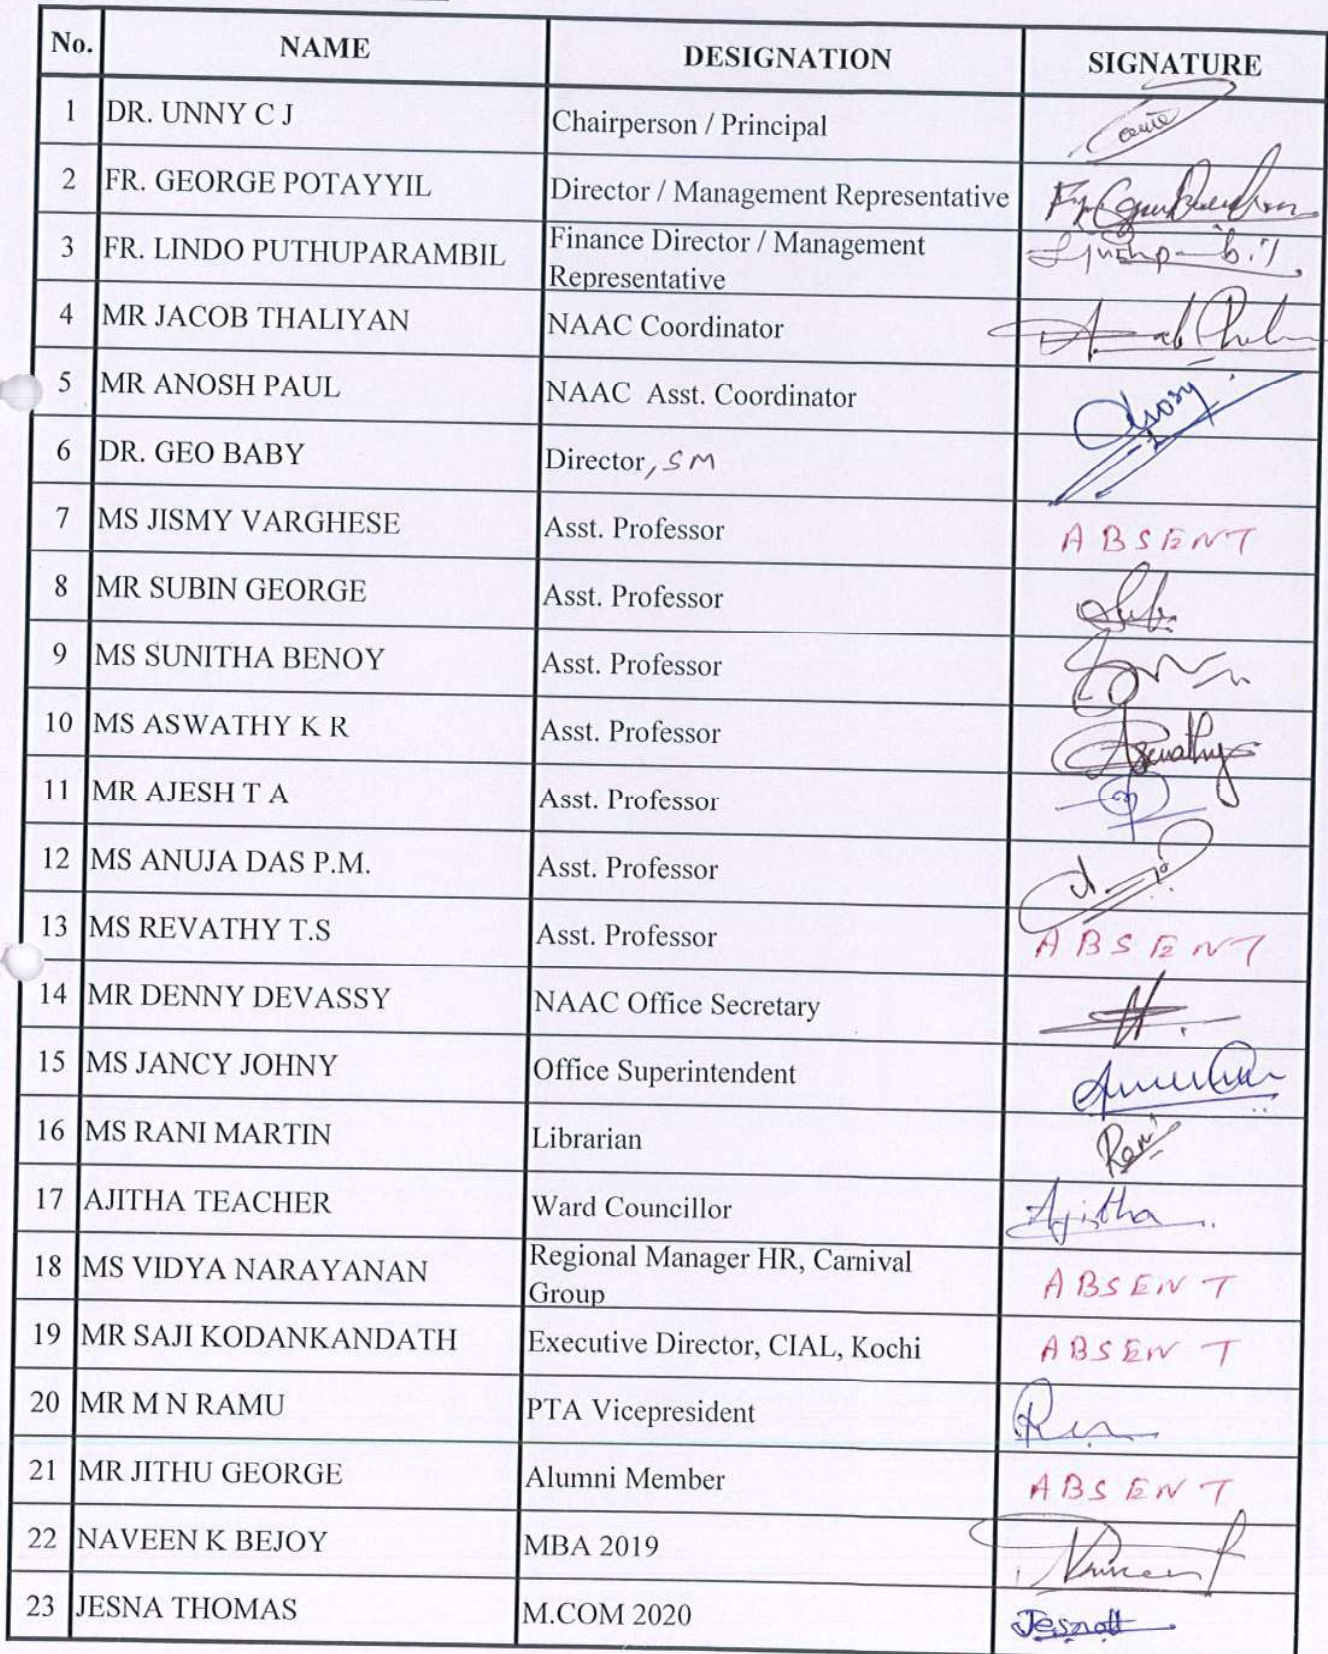 No. NAME DESIGNATION SIGNATURE
1 DR. UNNY C J Chairperson / Principal
2 FR. GEORGE POTAYYIL Director / Management Representative
3 FR. LINDO PUTHUPARAMBIL Finance Director / Management
Representative
4 MR JACOB THALIYAN NAAC Coordinator
5 MR ANOSH PAUL NAAC Asst. Coordinator
6 DR. GEO BABY Director, SM
7 MS JISMY VARGHESE Asst. Professor ABSENT
8 MR SUBIN GEORGE Asst. Professor
9 MS SUNITHA BENOY Asst. Professor
10 MS ASWATHY K R Asst. Professor Aswathy
11 MR AJESH T A Asst. Professor
12 MS ANUJA DAS P.M. Asst. Professor
13 MS REVATHY T.S Asst. Professor ABSENT
14 MR DENNY DEVASSY NAAC Office Secretary
15 MS JANCY JOHNY Office Superintendent
16 MS RANI MARTIN Librarian Rani
17 AJITHA TEACHER Ward Councillor Ajitha
18 MS VIDYA NARAYANAN Regional Manager HR, Carnival
Group ABSENT
19 MR SAJI KODANKANDATH Executive Director, CIAL, Kochi ABSENT
20 MR M N RAMU PTA Vicepresident
21 MR JITHU GEORGE Alumni Member ABSENT
22 NAVEEN K BEJOY MBA 2019
23 JESNA THOMAS M.COM 2020